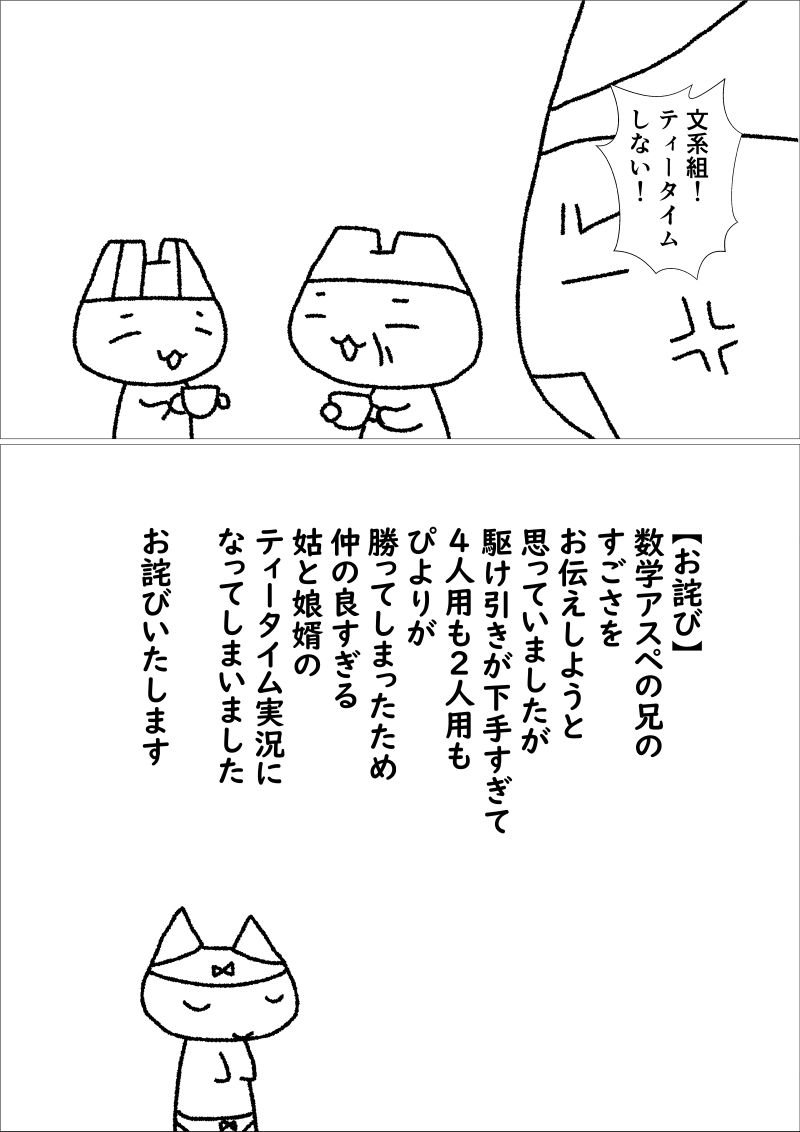 文系組！
ティータイム
しない！
【お詫び】
数学アスペの兄の
すごさを
お伝えしようと
思っていましたが
駆け引きが下手すぎて
４人用も２人用も
ぴよりが
勝ってしまったため
仲の良すぎる
姑と娘婿の
ティータイム実況に
なってしまいました
お詫びいたします